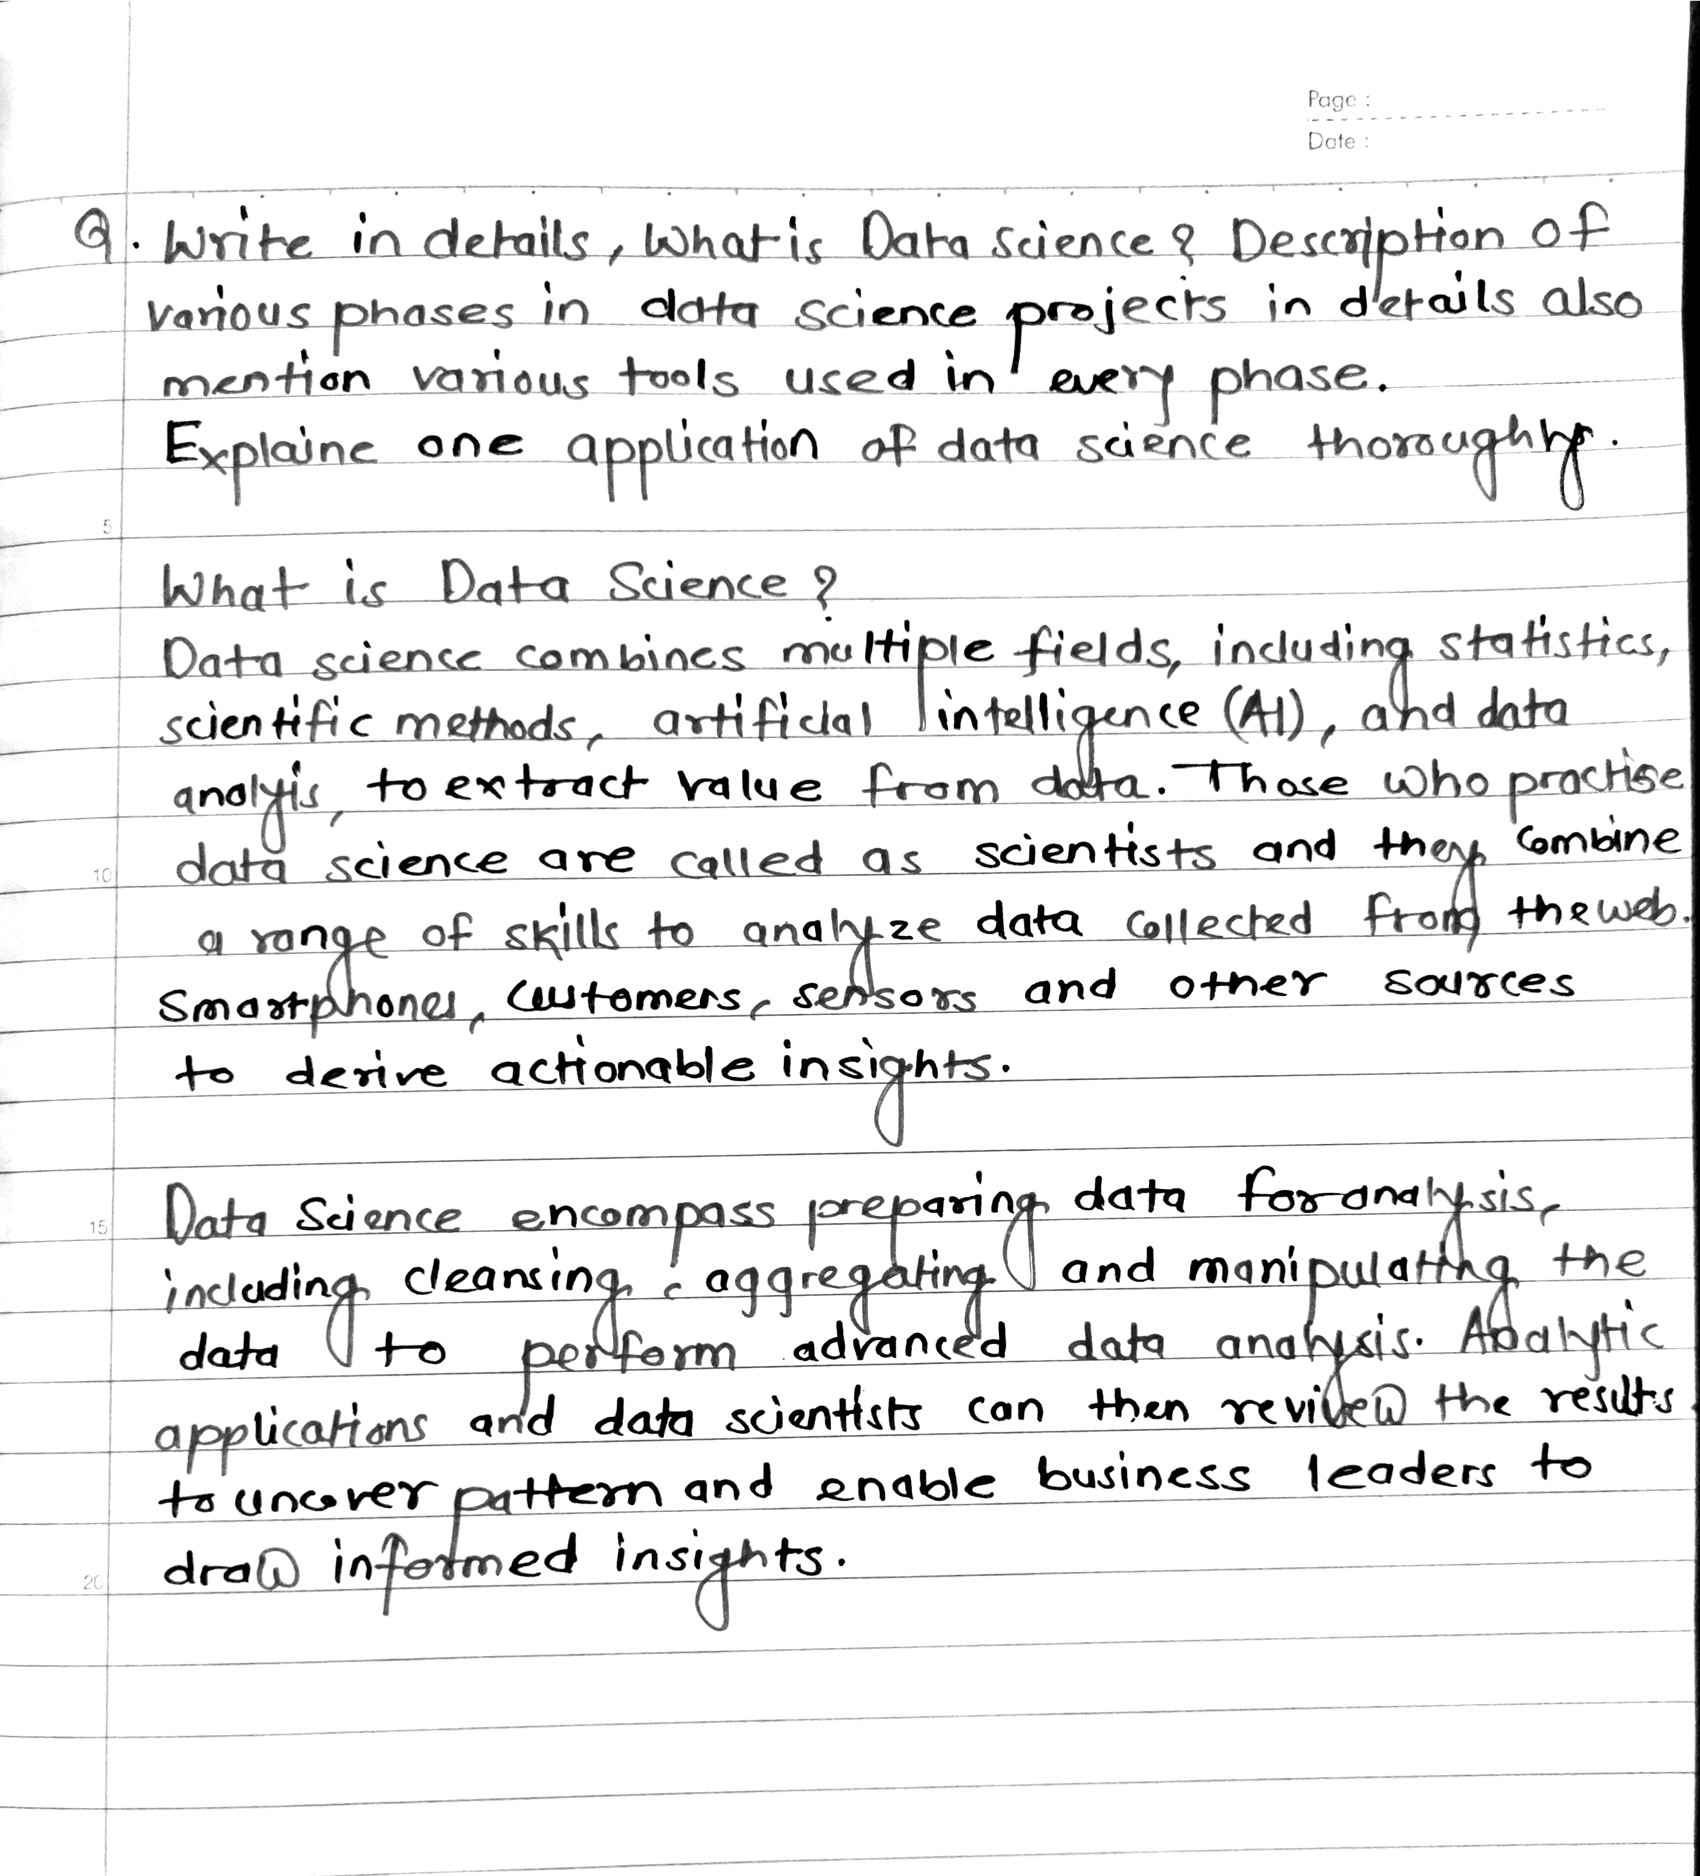 Page :
Date :
Q. Write in details, What is Data science? Description of
various phases in data science projects in details also
mention various tools used in every phase.
Explaine one application of data science thoroughly.
5
What is Data Science?
Data science combines multiple fields, including statistics,
scientific methods, artificial intelligence (AI), and data
analyis, to extract value from data. Those who practise
10 data science are called as scientists and they combine
a range of skills to analyze data collected from the web.
Smartphones, customers, sensors and other sources
to derive actionable insights.
15 Data Science encompass preparing data for analysis,
including cleansing, aggregating and manipulating the
data to perform advanced data analysis. Analytic
applications and data scientists can then review the results
to uncover pattern and enable business leaders to
20 draw informed insights.